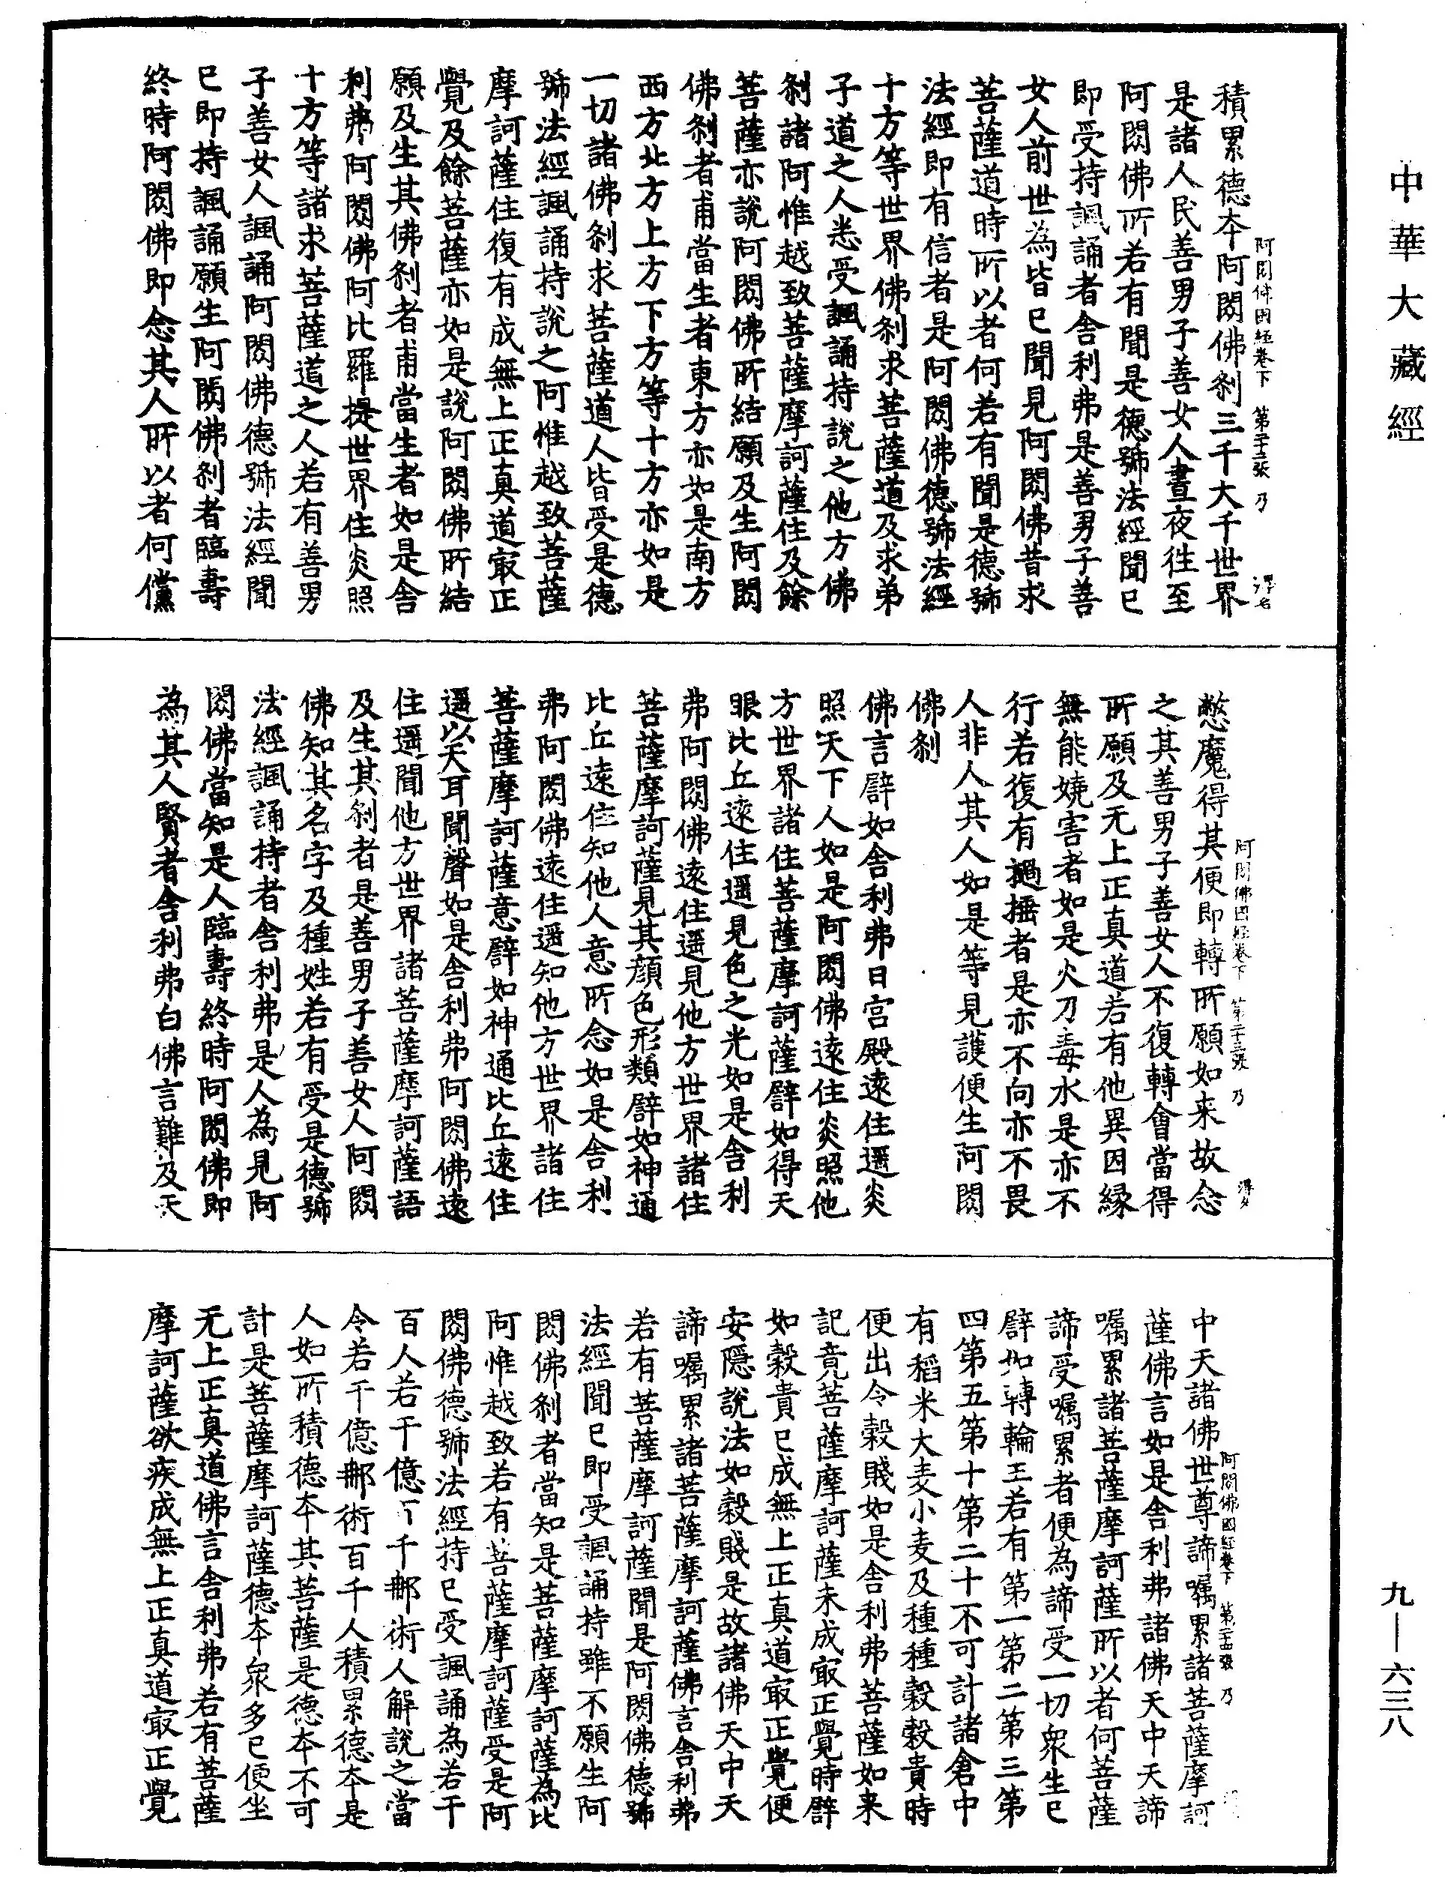 中華大藏經
積累德本阿閦佛剎三千大千世界
是諸人民善男子善女人晝夜往至
阿閦佛所若有聞是德號法經聞已
即受持諷誦者舍利弗是善男子善
女人前世為皆已聞見阿閦佛昔求
菩薩道時所以者何若有聞是德號
法經即有信者是阿閦佛德號法經
十方等世界佛剎求菩薩道及求弟
子道之人悉受諷誦持說之他方佛
剎諸阿惟越致菩薩摩訶薩住及餘
菩薩亦說阿閦佛所結願及生阿閦
佛剎者甫當生者東方亦如是南方
西方北方上方下方等十方亦如是
一切諸佛剎求菩薩道人皆受是德
號法經諷誦持說之阿惟越致菩薩
摩訶薩住復有成無上正真道㝡正
覺及餘菩薩亦如是說阿閦佛所結
願及生其佛剎者甫當生者如是舍
利弗阿閦佛阿比羅提世界住炎照
十方等諸求菩薩道之人若有善男
子善女人諷誦阿閦佛德號法經聞
已即持諷誦願生阿閦佛剎者臨壽
終時阿閦佛即念其人所以者何儻
阿閦佛國經卷下 第二十二張 乃
憋魔得其便即轉所願如来故念
之其善男子善女人不復轉會當得
所願及无上正真道若有他異因緣
無能嬈害者如是火刀毒水是亦不
行若復有撾捶者是亦不向亦不畏
人非人其人如是等見護便生阿閦
佛剎
佛言譬如舍利弗日宮殿遠住遥炎
照天下人如是阿閦佛遠住炎照他
方世界諸住菩薩摩訶薩譬如得天
眼比丘遠住遥見色之光如是舍利
弗阿閦佛遠住遥見他方世界諸住
菩薩摩訶薩見其顔色形類譬如神通
比丘遠住知他人意所念如是舍利
弗阿閦佛遠住遥知他方世界諸住
菩薩摩訶薩意譬如神通比丘遠住
遥以天耳聞聲如是舍利弗阿閦佛遠
住遥聞他方世界諸菩薩摩訶薩語
及生其剎者是善男子善女人阿閦
佛知其名字及種姓若有受是德號
法經諷誦持者舍利弗是人為見阿
閦佛當知是人臨壽終時阿閦佛即
為其人賢者舍利弗白佛言難及天
阿閦佛國經卷下 第二十三張 乃
中天諸佛世尊諦囑累諸菩薩摩訶
薩佛言如是舍利弗諸佛天中天諦
囑累諸菩薩摩訶薩所以者何菩薩
諦受囑累者便為諦受一切眾生已
譬如轉輪王若有第一第二第三第
四第五第十第二十不可計諸倉中
有稻米大麦小麦及種種穀穀貴時
便出令穀賤如是舍利弗菩薩如来
記竟菩薩摩訶薩未成㝡正覺時譬
如穀貴已成無上正真道㝡正覺便
安隱說法如穀賤是故諸佛天中天
諦囑累諸菩薩摩訶薩佛言舍利弗
若有菩薩摩訶薩聞是阿閦佛德號
法經聞已即受諷誦持雖不願生阿
閦佛剎者當知是菩薩摩訶薩為比
阿惟越致若有菩薩摩訶薩受是阿
閦佛德號法經持已受諷誦為若干
百人若干億百千那術人解說之當
令若干億那術百千人積累德本是
人如所積德本其菩薩是德本不可
計是菩薩摩訶薩德本眾多已便坐
无上正真道佛言舍利弗若有菩薩
摩訶薩欲疾成無上正真道㝡正覺
阿閦佛國經卷下 第二十四張 乃
九—六三八